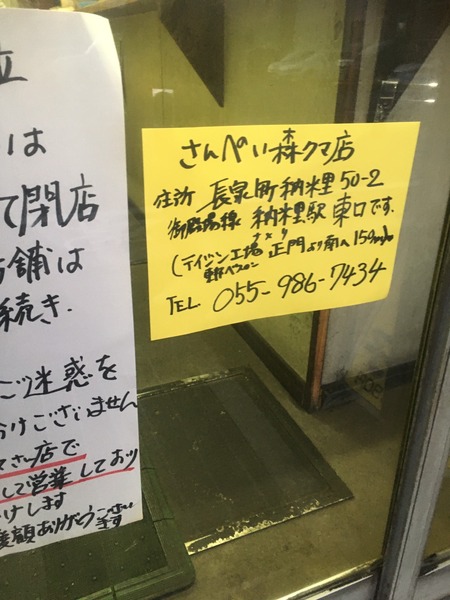 立
は
て閉店
店舗は
続き.
ご迷惑を
おかけございません
店で
して営業しており
けします
愛顧ありがとうございます
さんぺい森クマ店
住所 長泉町納米里50-2
御殿場線 納米里駅 東口です.
なめり
(テイジン工場 正門より南へ150m)
TEL 055-986-7434